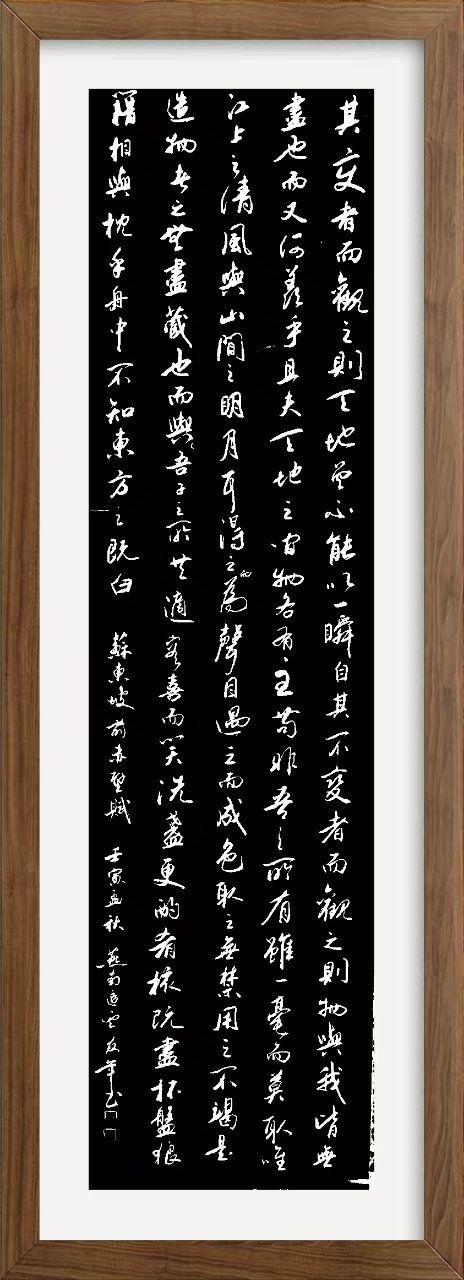 其变者而觀之則天地曾不能以一瞬自其不變者而觀之則物與我皆無
盡也而又何羨乎且夫天地之间物各有主苟非吾之所有雖一毫而莫取唯
江上之清風與山間之明月耳得之而為聲目遇之而成色取之無禁用之不竭是
造物者之無盡藏也而與吾子之所共適客喜而笑洗盞更酌肴核既盡杯盤狼
藉相與枕乎舟中不知東方之既白 蘇東坡前赤壁賦 壬寅孟秋 燕南